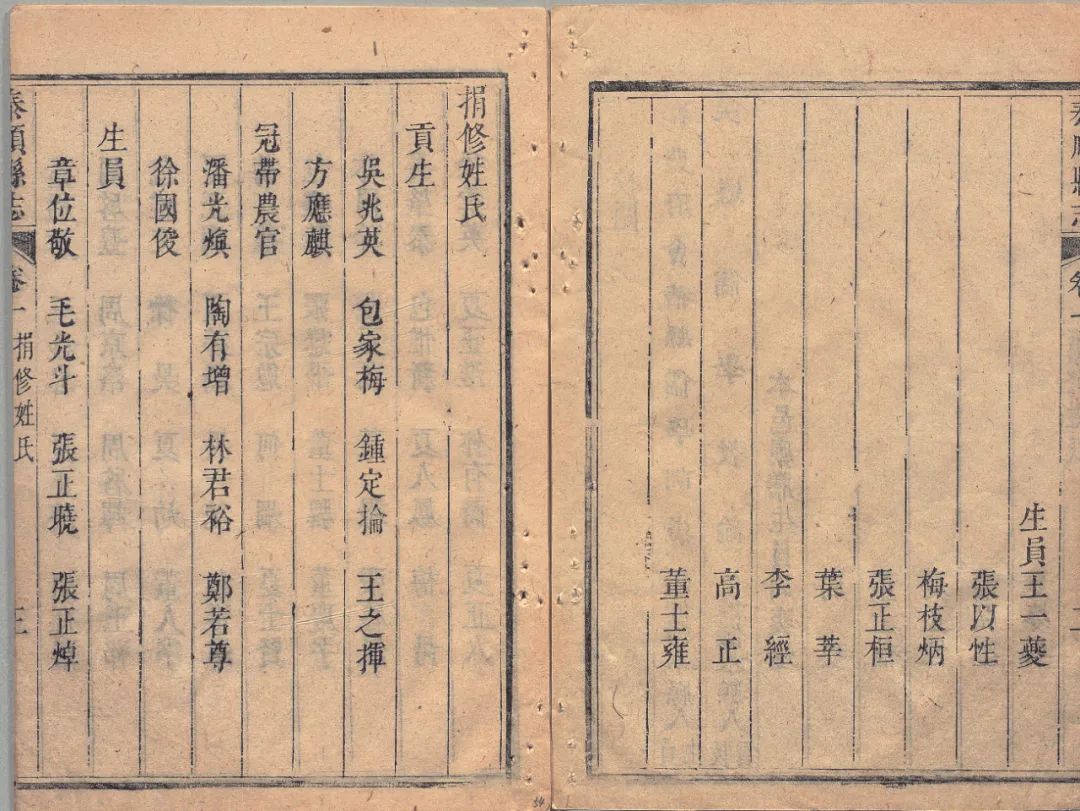 泰順縣志
卷一
二
生員王一夔
張以性
梅枝炳
張正桓
葉莘
李經
高正
董士雍
捐修姓氏
貢生
吳兆英 包家梅 鍾定掄 王之揮
方應麒
冠帶農官
潘光㷍 陶有增 林君裕 鄭若尊
徐國俊
生員
章位敬 毛光斗 張正曉 張正焯
泰順縣志
卷一 捐修姓氏
三
54